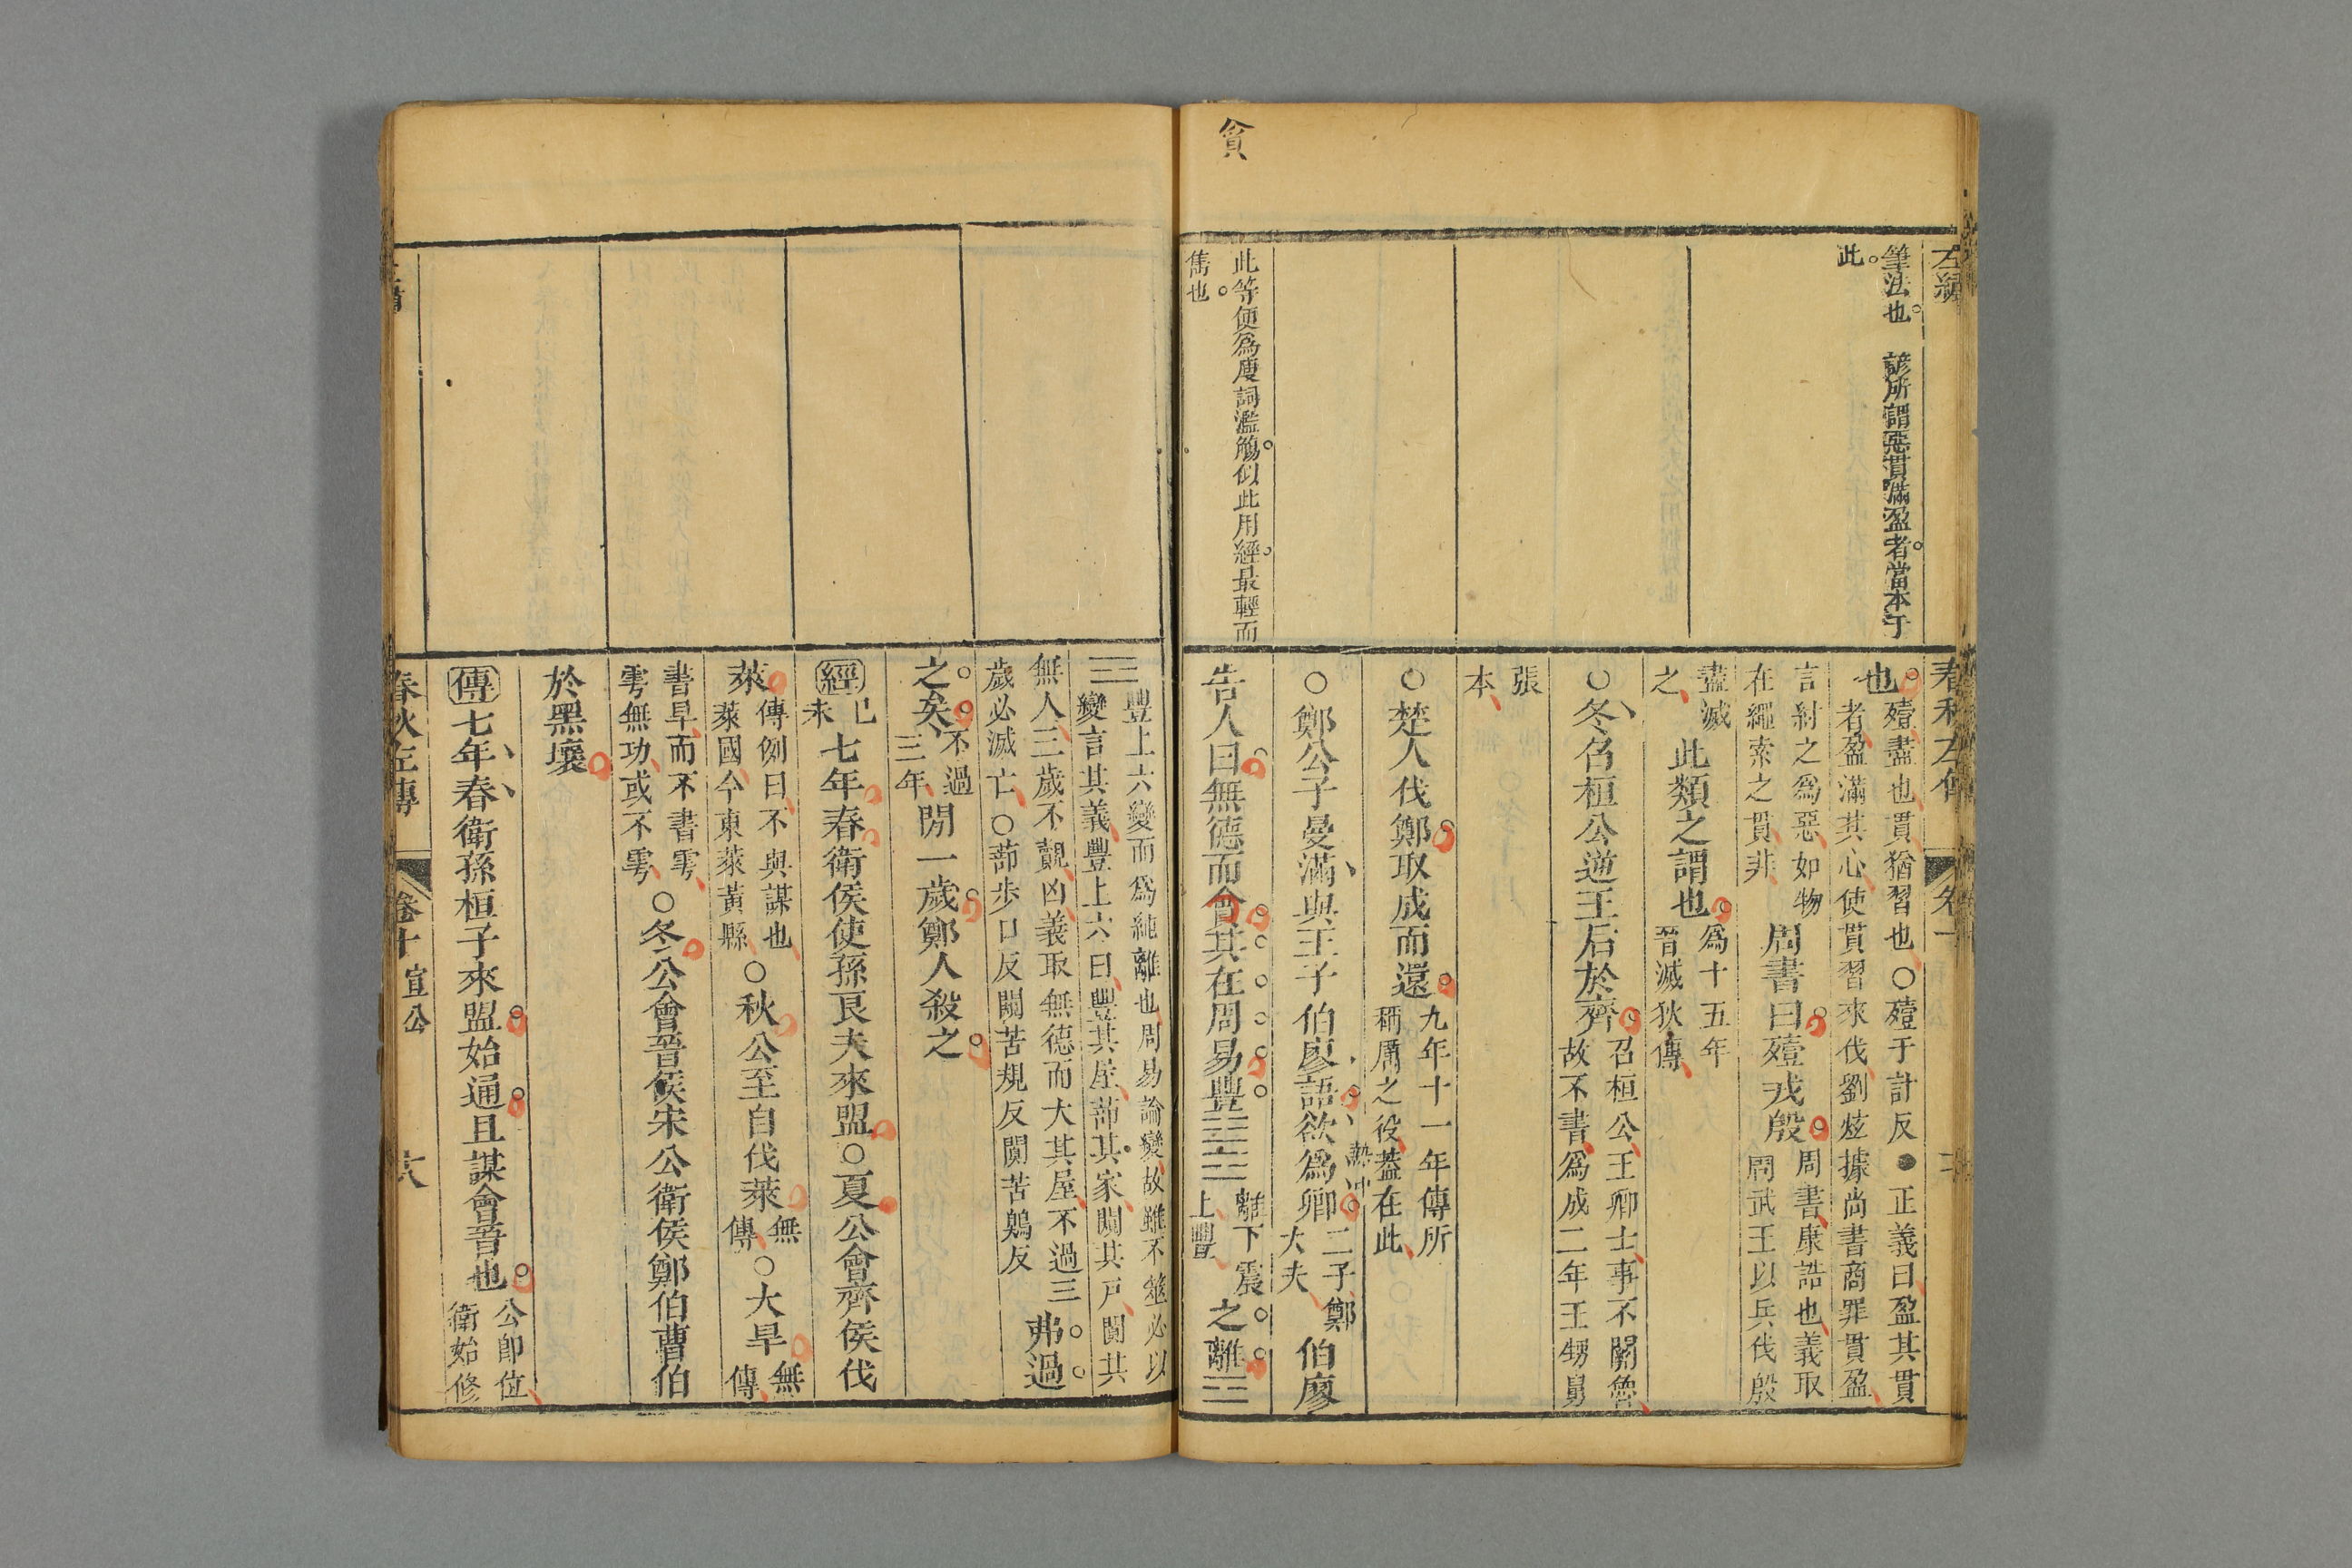 貪
左繡
筆法也。 諺所謂惡貫滿盈者。當本于
此。
此等便爲廋詞濫觴。似此用經。最輕而
雋也。
春秋左傳 卷十
也。殪盡也貫猶習也○殪于計反●正義曰盈其貫
者盈滿其心使貫習來伐劉炫據尚書商罪貫盈
言紂之爲惡如物
在繩索之貫非
周書曰殪戎殷。周書康誥也義取
周武王以兵伐殷
盡滅
之
此類之謂也。爲十五年
晉滅狄傳
○冬召桓公逆王后於齊。召桓公王卿士事不關魯
故不書爲成二年王甥舅
張
本
○楚人伐鄭。取成而還。九年十一年傳所
稱厲之役蓋在此
○鄭公子曼滿與王子伯廖語。欲爲卿。二子鄭
大夫
伯廖
熱中
告人曰。無德而貪。其在周易豐䷶離下震
上豐
之離䷝
豐上六變而爲純離也周易論變故雖不筮必以
變言其義豐上六曰豐其屋蔀其家闚其戶闃其
無人三歲不覿凶義取無德而大其屋不過三
歲必滅亡○蔀步口反闚苦規反闃苦鵙反
弗過
之矣。不過
三年
閒一歲。鄭人殺之。
經 己
未
七年春衛侯使孫良夫來盟○夏公會齊侯伐
萊傳例曰不與謀也
萊國今東萊黃縣
○秋公至自伐萊無
傳
○大旱無
傳
書旱而不書雩
雩無功或不雩
○冬公會晉侯宋公衛侯鄭伯曹伯
於黑壤
傳七年春衛孫桓子來盟。始通。且謀會晉也。公卽位
衛始修
春秋左傳 卷十 宣公